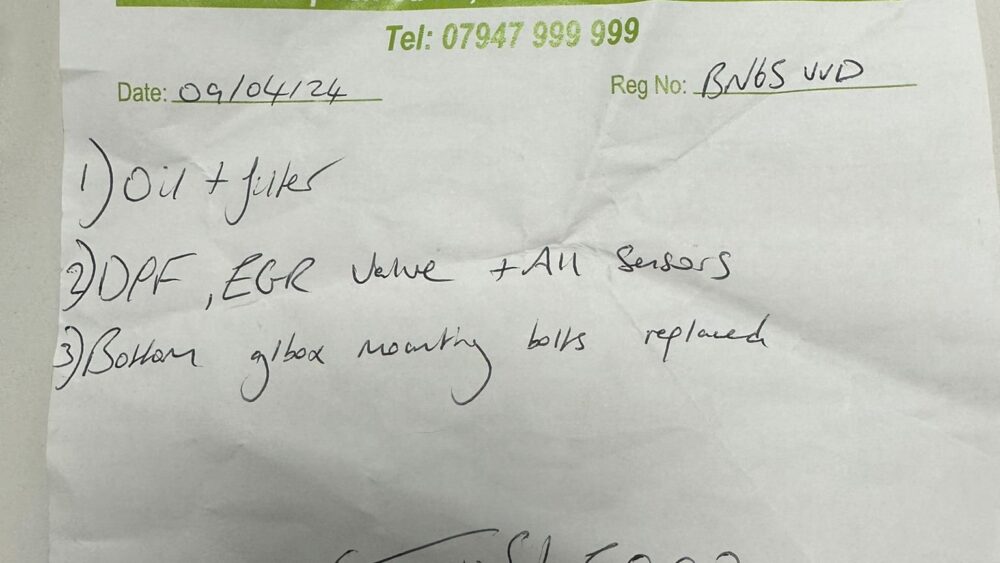 Tel: 07947 999 999
Date: 09/04/24 Reg No: BN65 VVD
1) Oil + filter
2) DPF, EGR Valve + All Sensors
3) Bottom g/box mounting bolts replaced